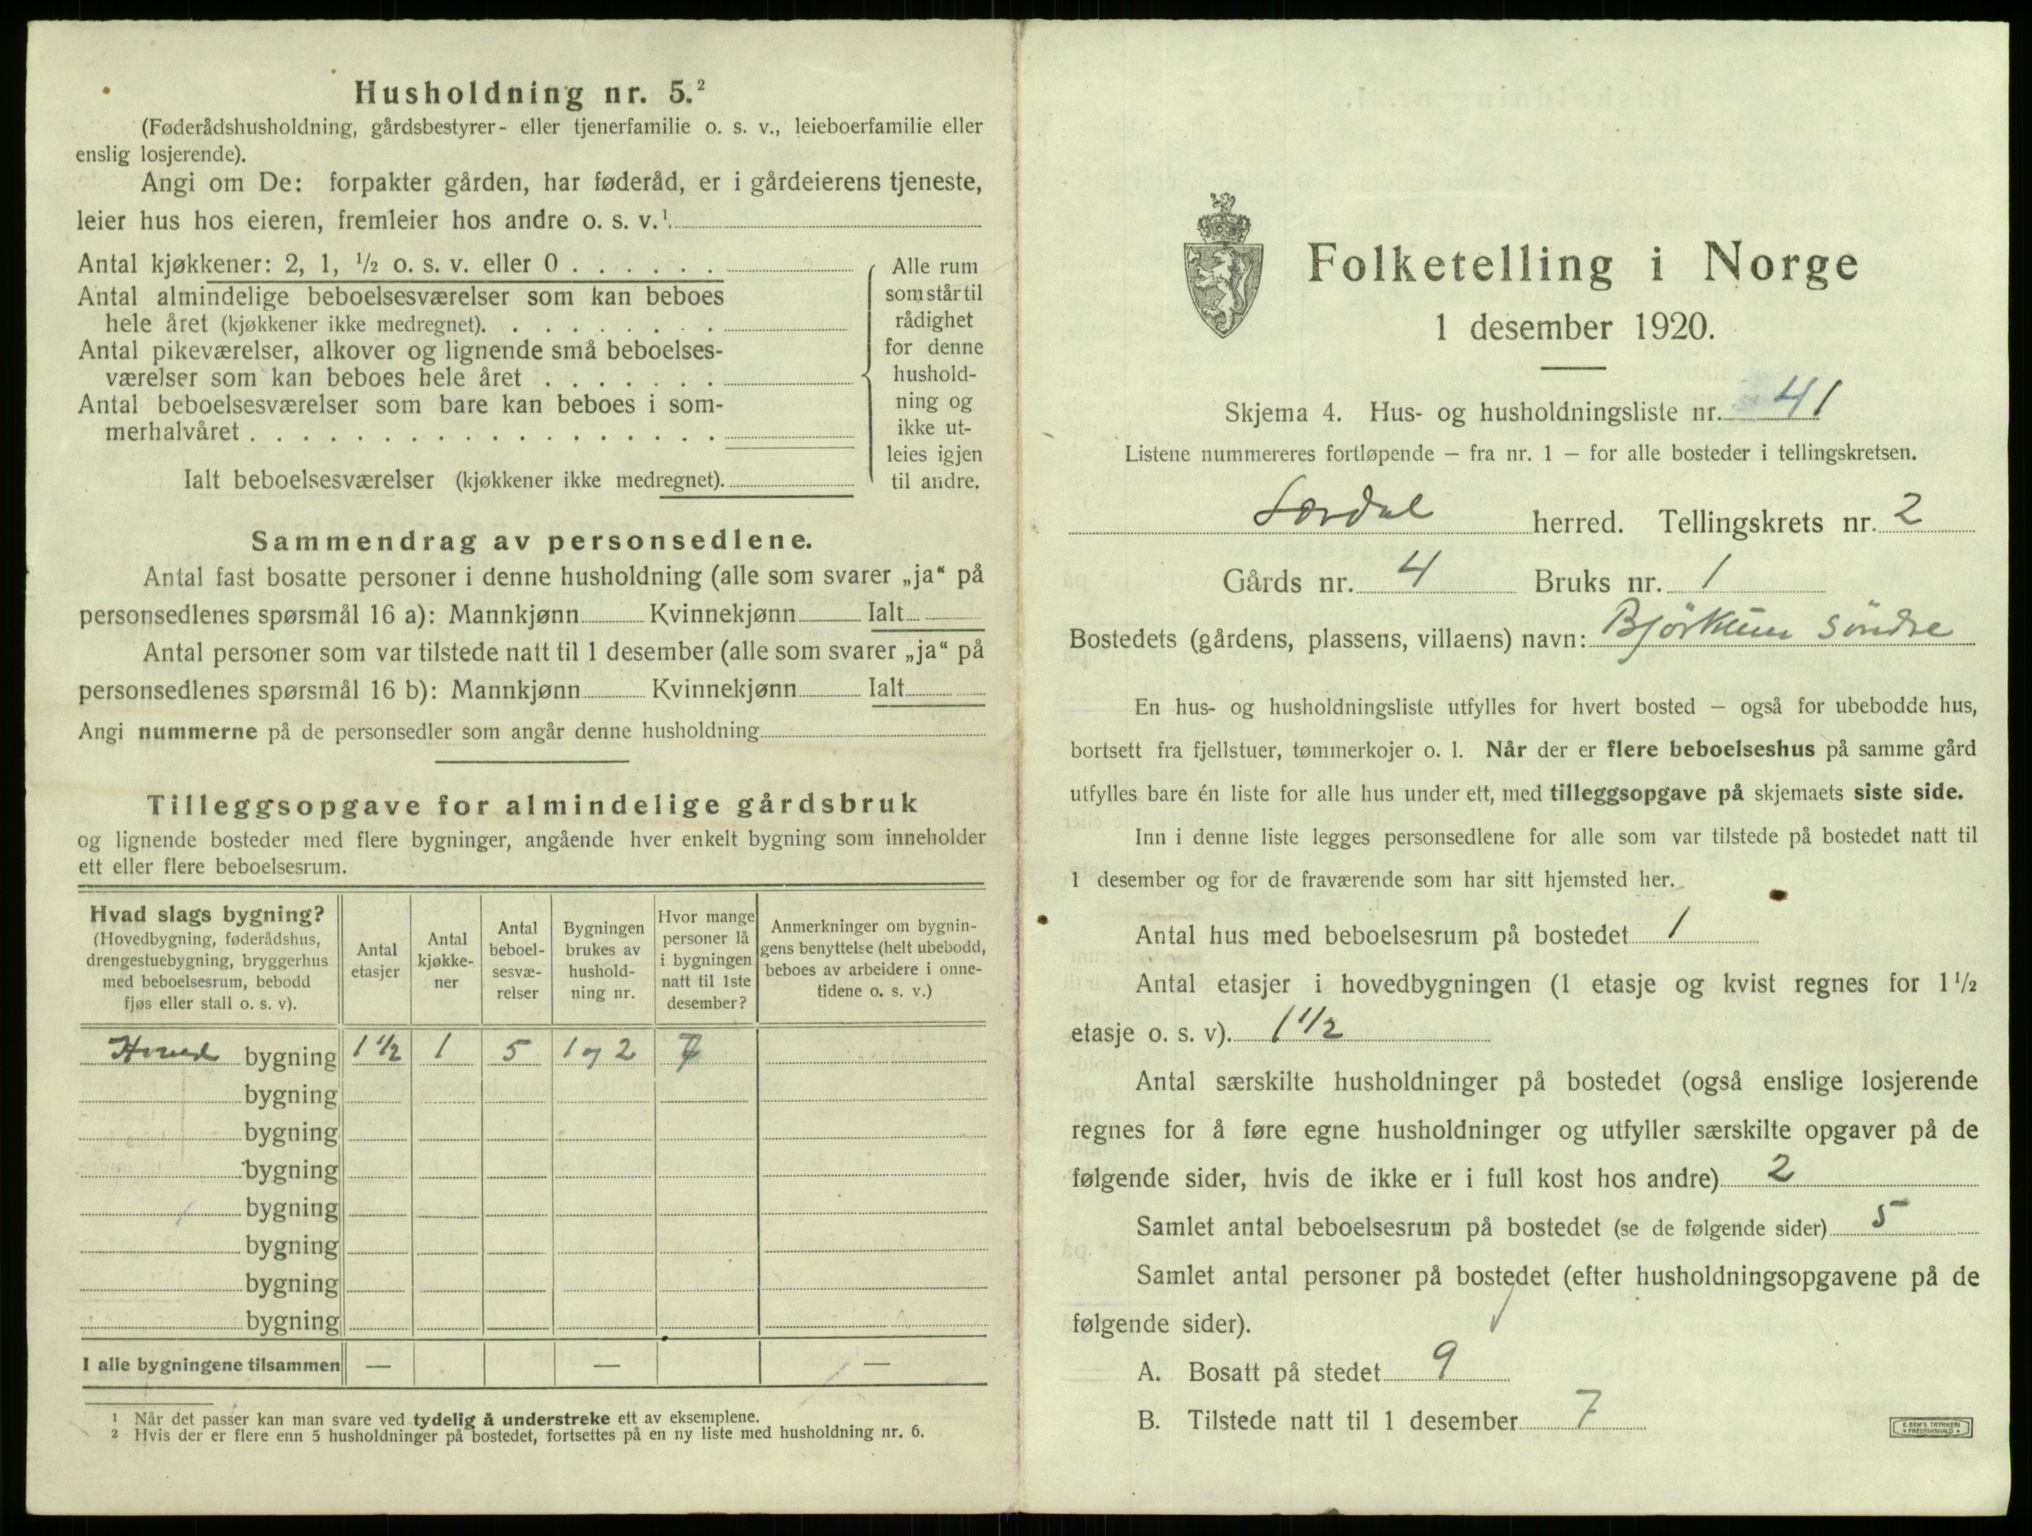 Husholdning nr. 5.²
(Føderådshusholdning, gårdsbestyrer- eller tjenerfamilie o. s. v., leieboerfamilie eller
enslig losjerende).
Angi om De: forpakter gården, har føderåd, er i gårdeierens tjeneste,
leier hus hos eieren, fremleier hos andre o. s. v.¹
Antal kjøkkener: 2, 1, ½ o. s. v. eller 0 . . . . . .
Antal almindelige beboelsesværelser som kan beboes
hele året (kjøkkener ikke medregnet). . . . . . . .
Antal pikeværelser, alkover og lignende små beboelses-
værelser som kan beboes hele året . . . . . . .
Antal beboelsesværelser som bare kan beboes i som-
merhalvåret . . . . . . . . . . . . . . . . . .
Ialt beboelsesværelser (kjøkkener ikke medregnet).
Alle rum
som står til
rådighet
for denne
hushold-
ning og
ikke ut-
leies igjen
til andre.
Sammendrag av personsedlene.
Antal fast bosatte personer i denne husholdning (alle som svarer „ja“ på
personsedlenes spørsmål 16 a): Mannkjønn Kvinnekjønn Ialt
Antal personer som var tilstede natt til 1 desember (alle som svarer „ja“ på
personsedlenes spørsmål 16 b): Mannkjønn Kvinnekjønn Ialt
Angi nummerne på de personsedler som angår denne husholdning
Tilleggsopgave for almindelige gårdsbruk
og lignende bosteder med flere bygninger, angående hver enkelt bygning som inneholder
ett eller flere beboelsesrum.
Hvad slags bygning?
(Hovedbygning, føderådshus,
drengestuebygning, bryggerhus
med beboelsesrum, bebodd
fjøs eller stall o. s. v).
Antal
etasjer
Antal
kjøkke-
ner
Antal
beboel-
sesvæ-
relser
Bygningen
brukes av
hushold-
ning nr.
Hvor mange
personer lå
i bygningen
natt til 1ste
desember?
Anmerkninger om bygnin-
gens benyttelse (helt ubebodd,
beboes av arbeidere i onne-
tidene o. s. v.)
Hoved bygning 1 ½ 1 5 1 og 2 7
bygning
bygning
bygning
bygning
bygning
bygning
bygning
I alle bygningene tilsammen — — —
¹ Når det passer kan man svare ved tydelig å understreke ett av eksemplene.
² Hvis der er flere enn 5 husholdninger på bostedet, fortsettes på en ny liste med husholdning nr. 6.
Folketelling i Norge
1 desember 1920.
Skjema 4. Hus- og husholdningsliste nr. 41
Listene nummereres fortløpende – fra nr. 1 – for alle bosteder i tellingskretsen.
Lærdal herred. Tellingskrets nr. 2
Gårds nr. 4 Bruks nr. 1
Bostedets (gårdens, plassens, villaens) navn: Bjørkum søndre
En hus- og husholdningsliste utfylles for hvert bosted – også for ubebodde hus,
bortsett fra fjellstuer, tømmerkojer o. l. Når der er flere beboelseshus på samme gård
utfylles bare én liste for alle hus under ett, med tilleggsopgave på skjemaets siste side.
Inn i denne liste legges personsedlene for alle som var tilstede på bostedet natt til
1 desember og for de fraværende som har sitt hjemsted her.
Antal hus med beboelsesrum på bostedet 1
Antal etasjer i hovedbygningen (1 etasje og kvist regnes for 1 ½
etasje o. s. v). 1 ½
Antal særskilte husholdninger på bostedet (også enslige losjerende
regnes for å føre egne husholdninger og utfyller særskilte opgaver på de
følgende sider, hvis de ikke er i full kost hos andre) 2
Samlet antal beboelsesrum på bostedet (se de følgende sider) 5
Samlet antal personer på bostedet (efter husholdningsopgavene på de
følgende sider).
A. Bosatt på stedet 9
B. Tilstede natt til 1 desember 7
E. SEM'S TRYKKERI
FREDRIKSHALD